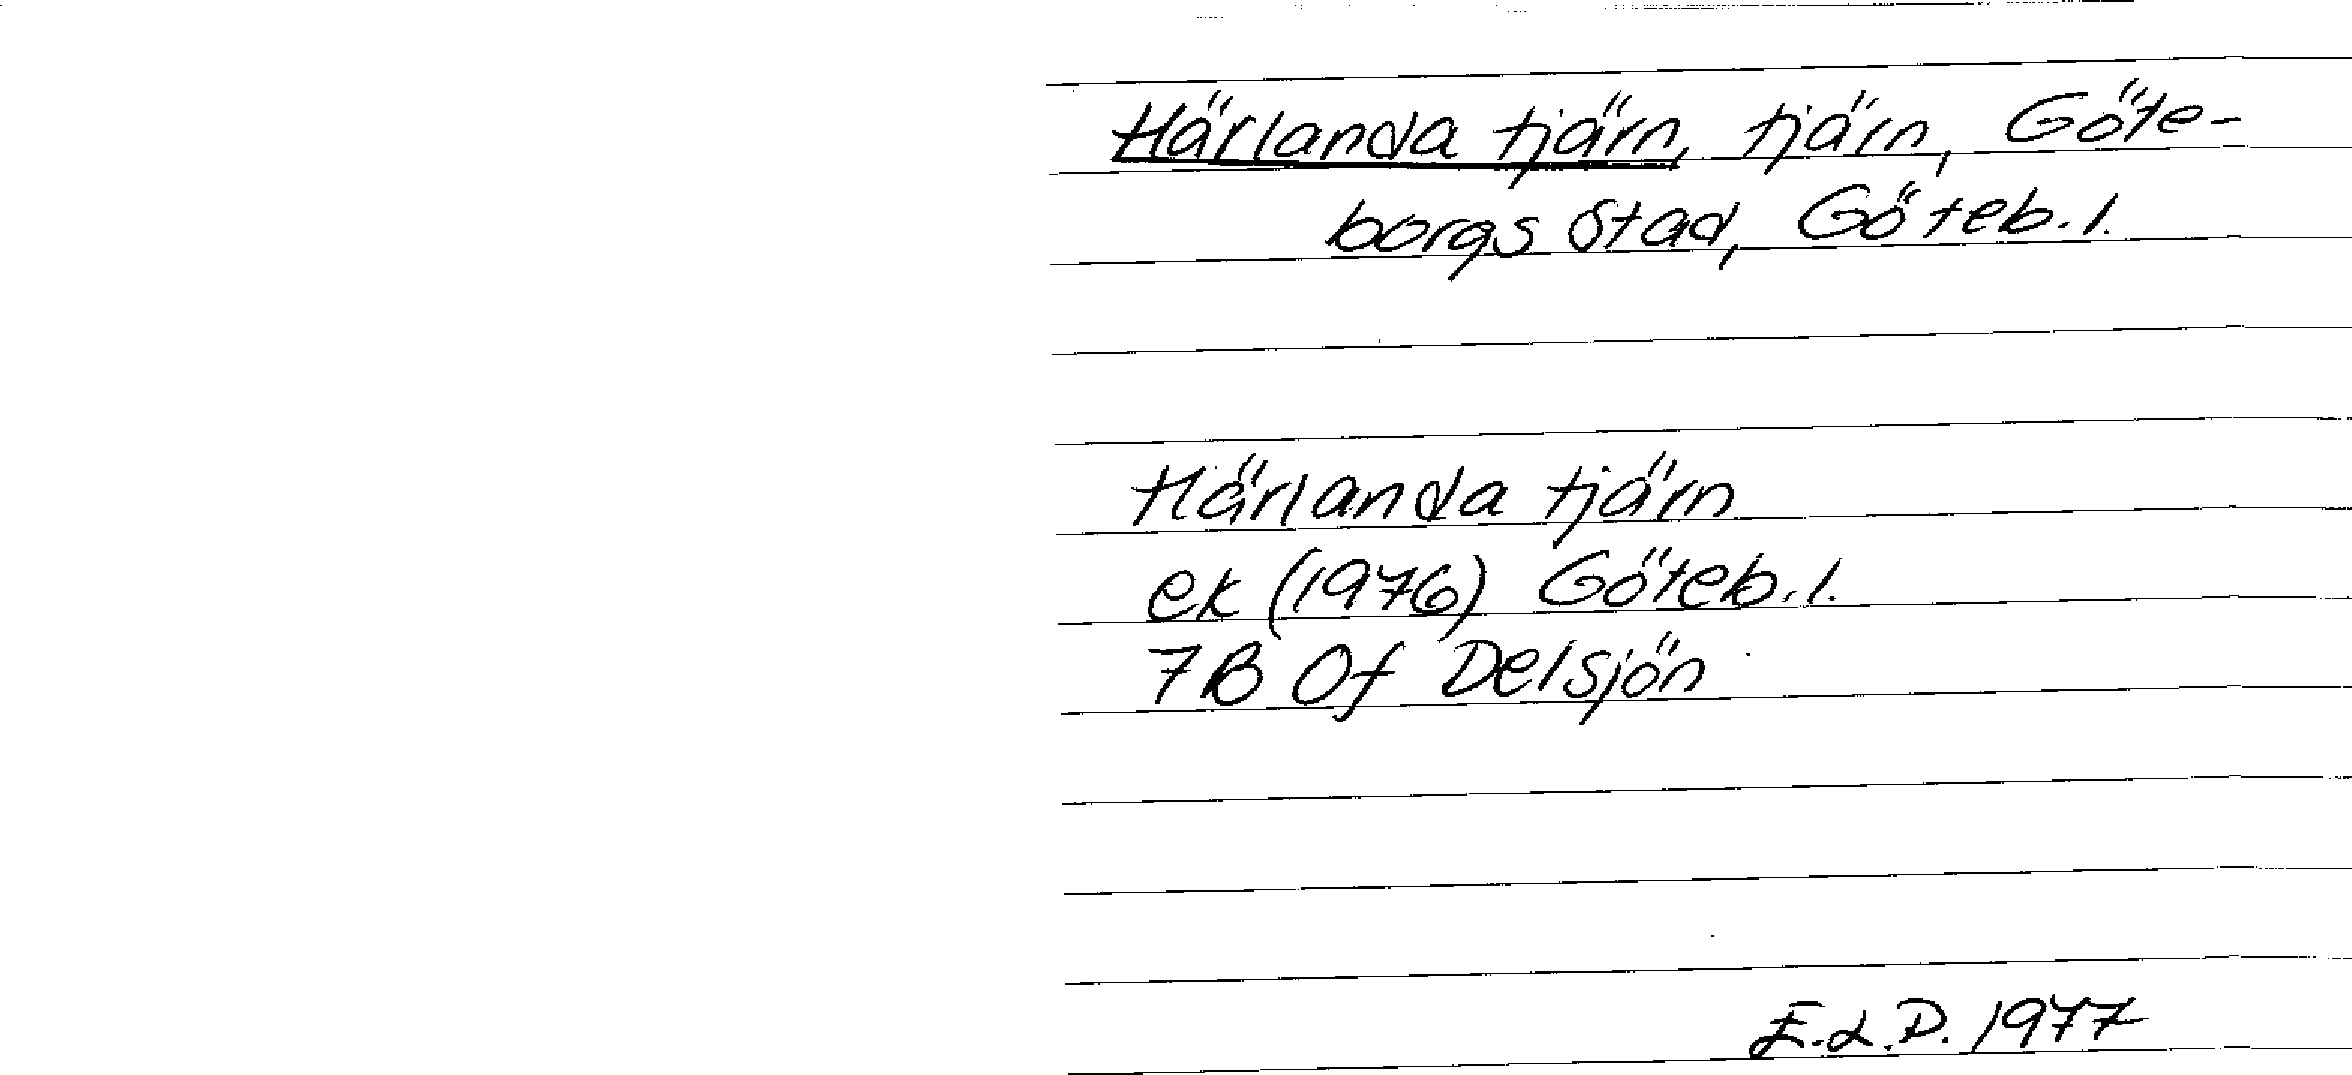 Härlanda tjärn, tjärn, Göte-
borgs Stad, Göteb. l.
Härlanda tjärn
ek (1976) Göteb. l.
7B 0f Delsjön
E.L.P. 1977